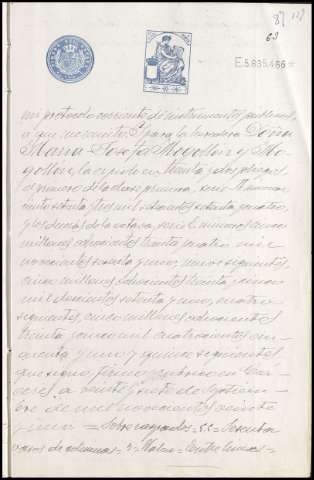 87 127
63
E.5.835.466
mi protocolo corriente de instrumentos públicos,
á que me remito. Y para la heredera Doña
María Josefa Mogollón y Mo-
gollón, la expido en treinta y dos pliegos
el primero de la clase primera, serie
ciento setenta y tres mil setecientos setenta y cuatro,
y los demás de la octava, serie E. números cinco
millones ochocientos treinta y cuatro mil
novecientos setenta y uno,
cinco millones ochocientos treinta y cinco
mil doscientos setenta y uno, cuatro
siguientes, cinco millones ochocientos
treinta y cinco mil cuatrocientos cin-
cuenta y uno y quince siguientes,
que signo, firmo y rubrico en Các-
ceres, a veinte y siete de Septiem-
bre de mil novecientos veinte
y uno = Sobrerraspados =
de = Valen = Entre lineas =